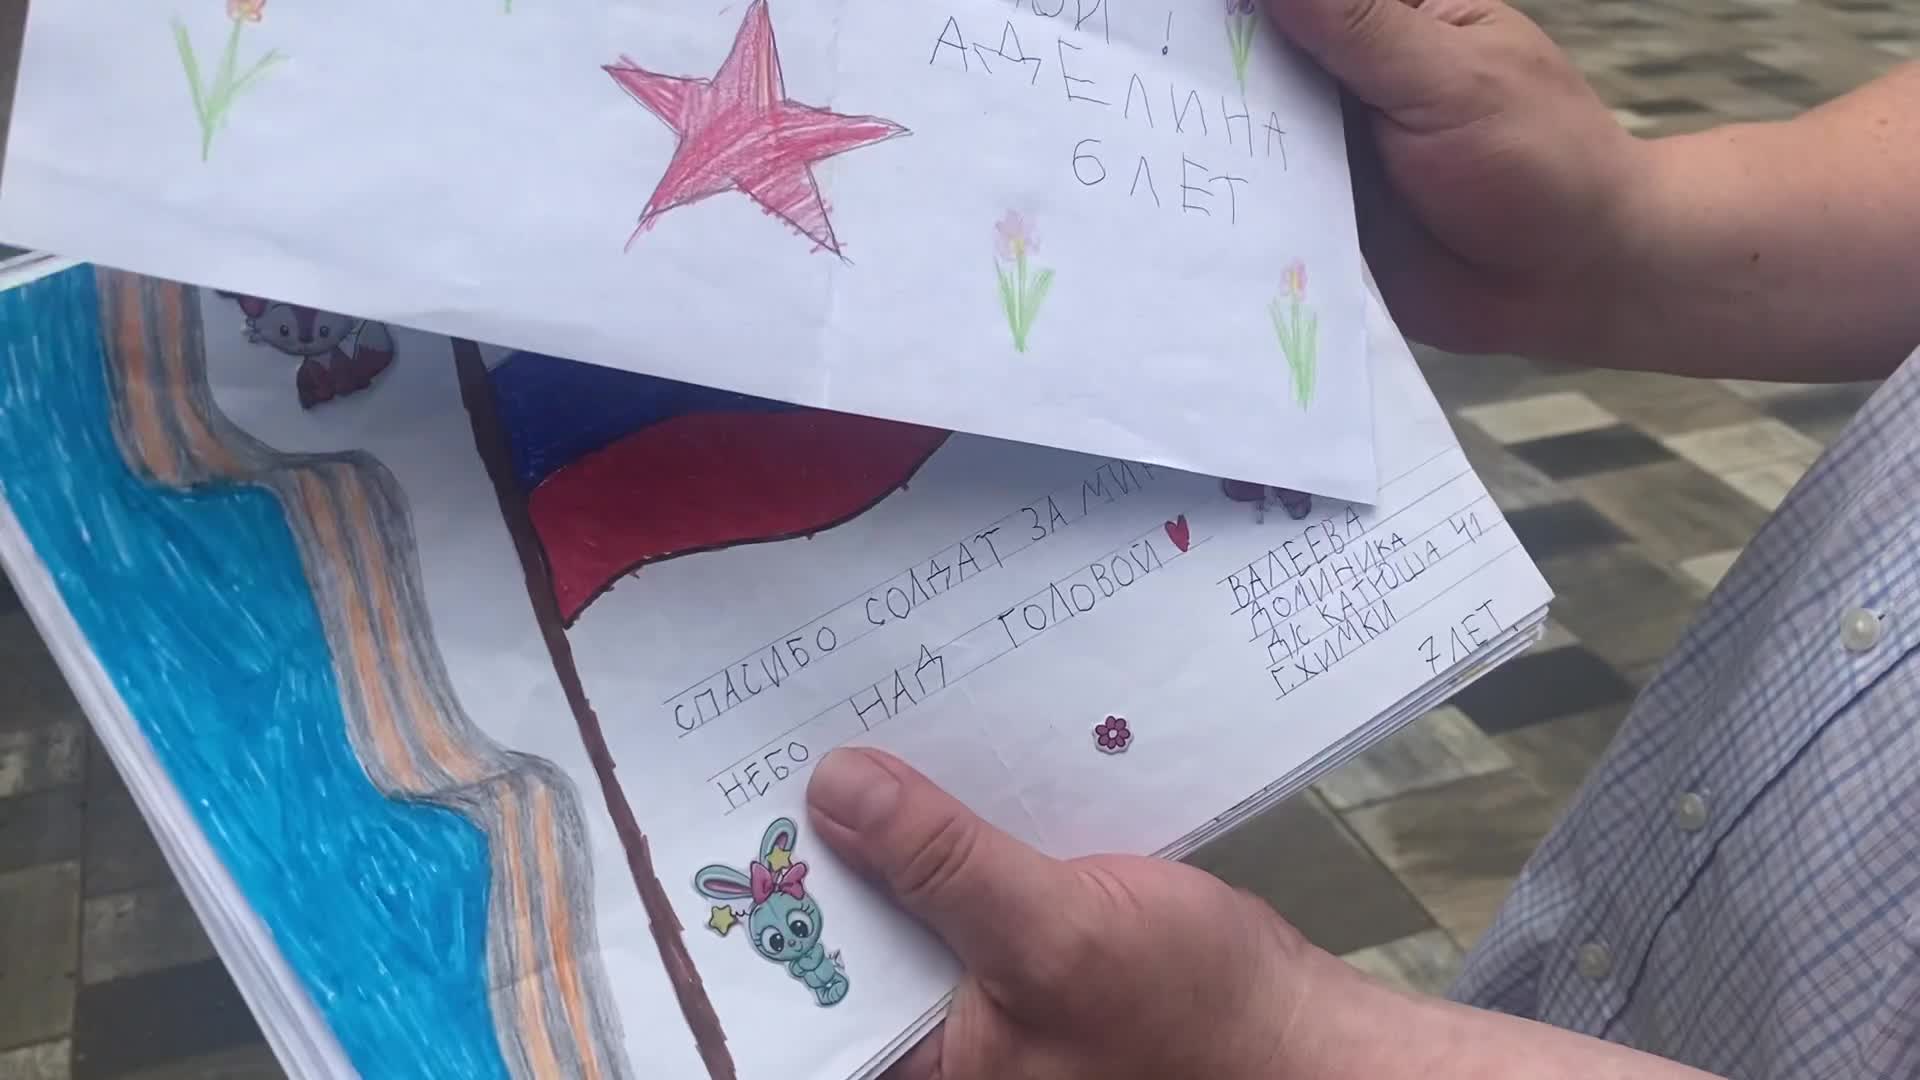 !
АДЕЛИНА
6 ЛЕТ
СПАСИБО СОЛДАТ ЗА
НЕБО НАД ГОЛОВОЙ
ВАЛЕЕВА
ДОМИНИКА
Д/С КАТЮША 41
Г. ХИМКИ
7 ЛЕТ